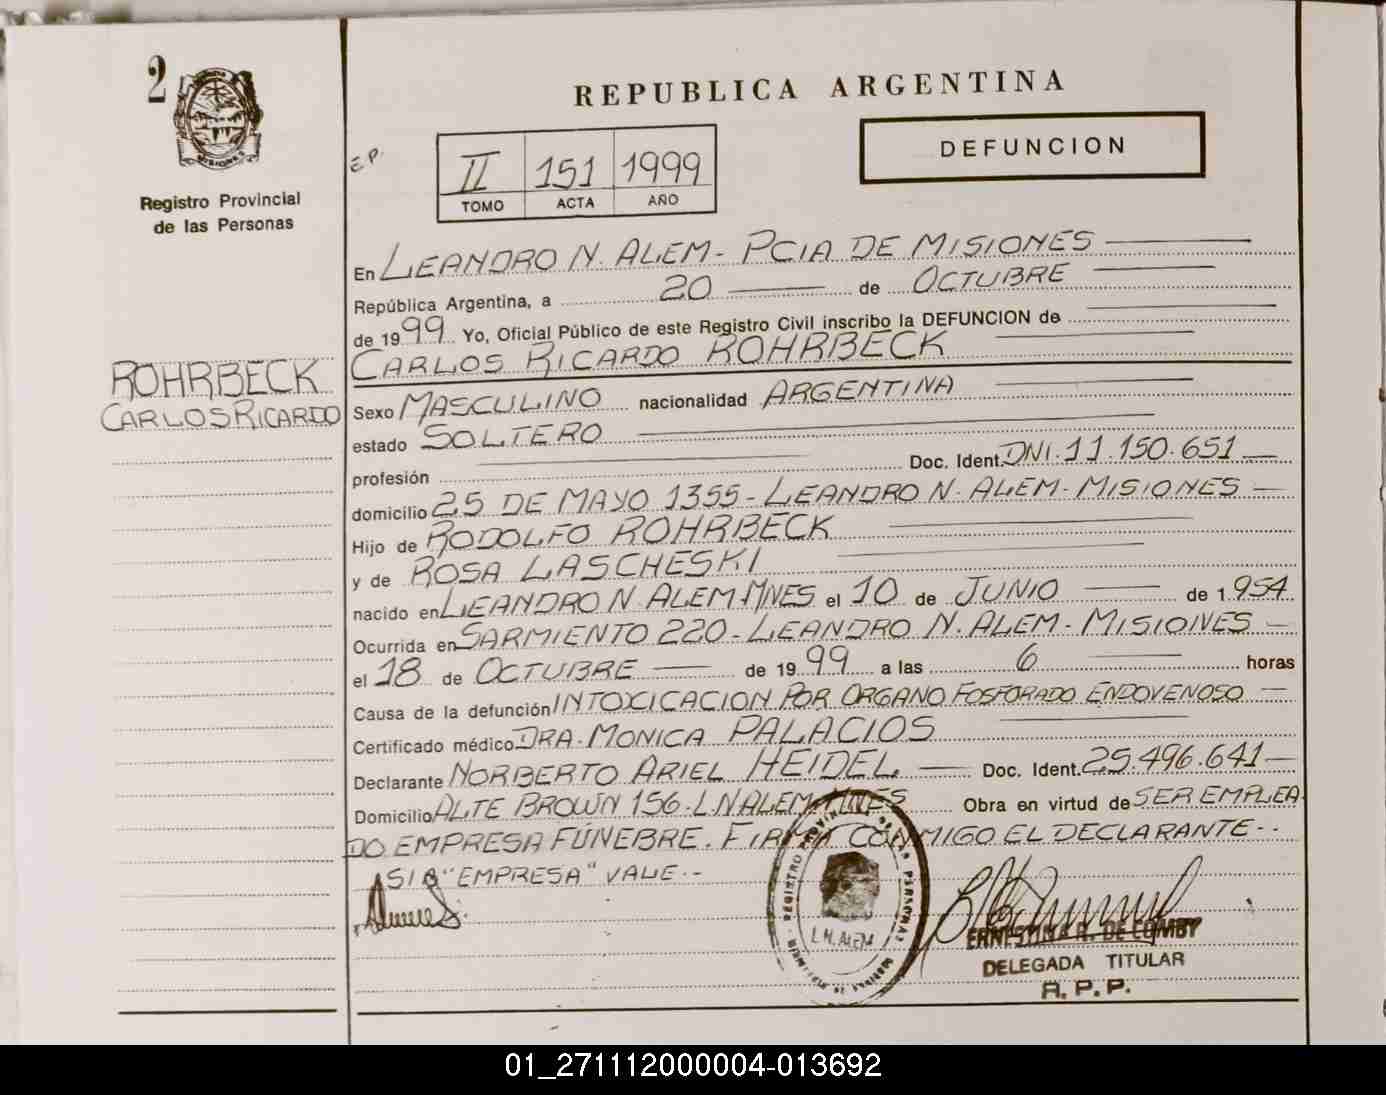 2
MISIONES
Registro Provincial
de las Personas
ROHRBECK
CARLOS RICARDO
REPUBLICA ARGENTINA
E.P.
II 151 1999
TOMO ACTA AÑO
DEFUNCION
En LEANDRO N. ALEM - PCIA DE MISIONES
República Argentina, a 20 de OCTUBRE
de 1999 Yo, Oficial Público de este Registro Civil inscribo la DEFUNCION de
CARLOS RICARDO ROHRBECK
Sexo MASCULINO nacionalidad ARGENTINA
estado SOLTERO
profesión Doc. Ident. DNI. 11.150.651
domicilio 25 DE MAYO 1355 - LEANDRO N. ALEM - MISIONES
Hijo de RODOLFO ROHRBECK
y de ROSA LASCHESKI
nacido en LEANDRO N. ALEM MNES el 10 de JUNIO de 1.954
Ocurrida en SARMIENTO 220 - LEANDRO N. ALEM - MISIONES
el 18 de OCTUBRE de 1999 a las 6 horas
Causa de la defunción INTOXICACION POR ORGANO FOSFORADO ENDOVENOSO
Certificado médico DRA. MONICA PALACIOS
Declarante NORBERTO ARIEL HEIDEL Doc. Ident. 25.496.641
Domicilio ALTE BROWN 156 - L N ALEM MNES Obra en virtud de SER EMPLEA
DO EMPRESA FÚNEBRE. FIRMA CONMIGO EL DECLARANTE - .
"EMPRESA" VALE . -
L.N. ALEM
ERNESTINA R. DE LOMBY
DELEGADA TITULAR
R. P. P.
01_271112000004-013692